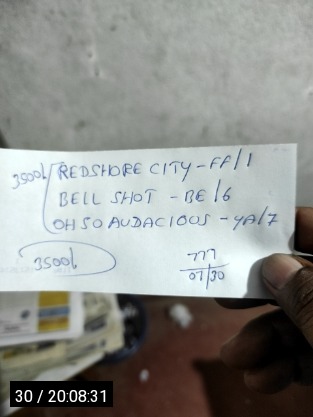 3500/ REDSHORE CITY - FF/1
BELL SHOT - BE/6
OH SO AUDACIOUS - YA/7
3500/
777
01/30
30 / 20:08:31